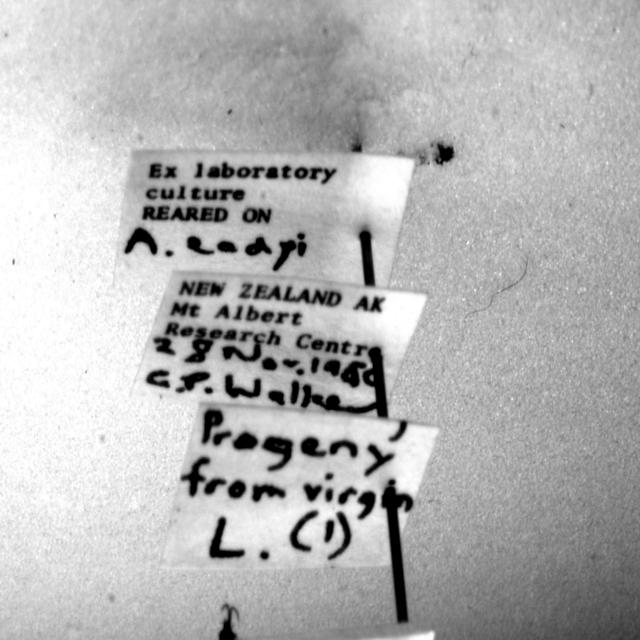 Ex laboratory
culture
REARED ON
A. eadyi
NEW ZEALAND AK
Mt Albert
Research Centre
28 Nov. 1980
Progeny
from virgin
L. (1)